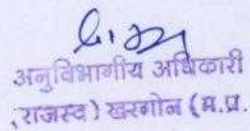 अनुविभागीय अधिकारी
,राजस्व) खरगोन (म.प्र.